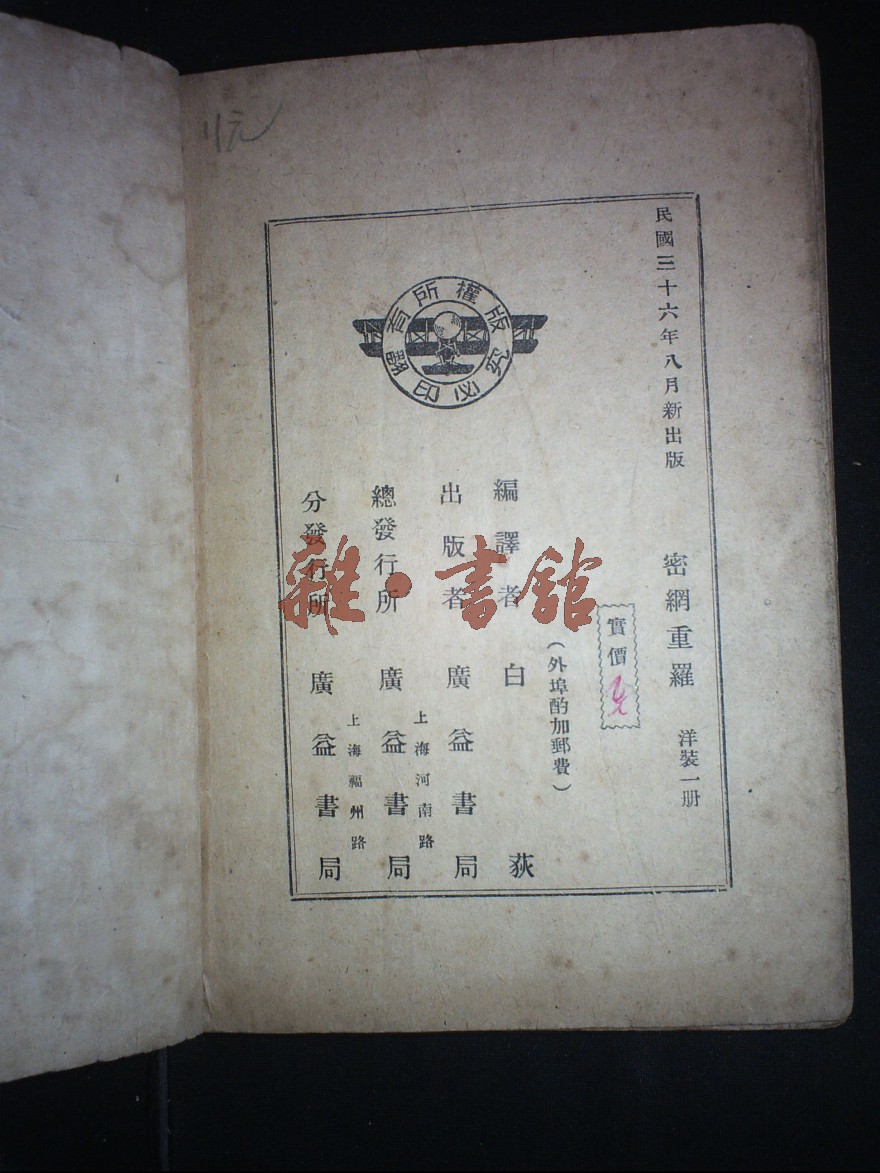 民國三十六年八月新出版
密網重羅 洋裝一册
實價
(外埠酌加郵費)
編譯者 白荻
出版者 廣益書局
上海河南路
總發行所 廣益書局
上海福州路
分發行所 廣益書局
版權所有
翻印必究
11元
雜·書館